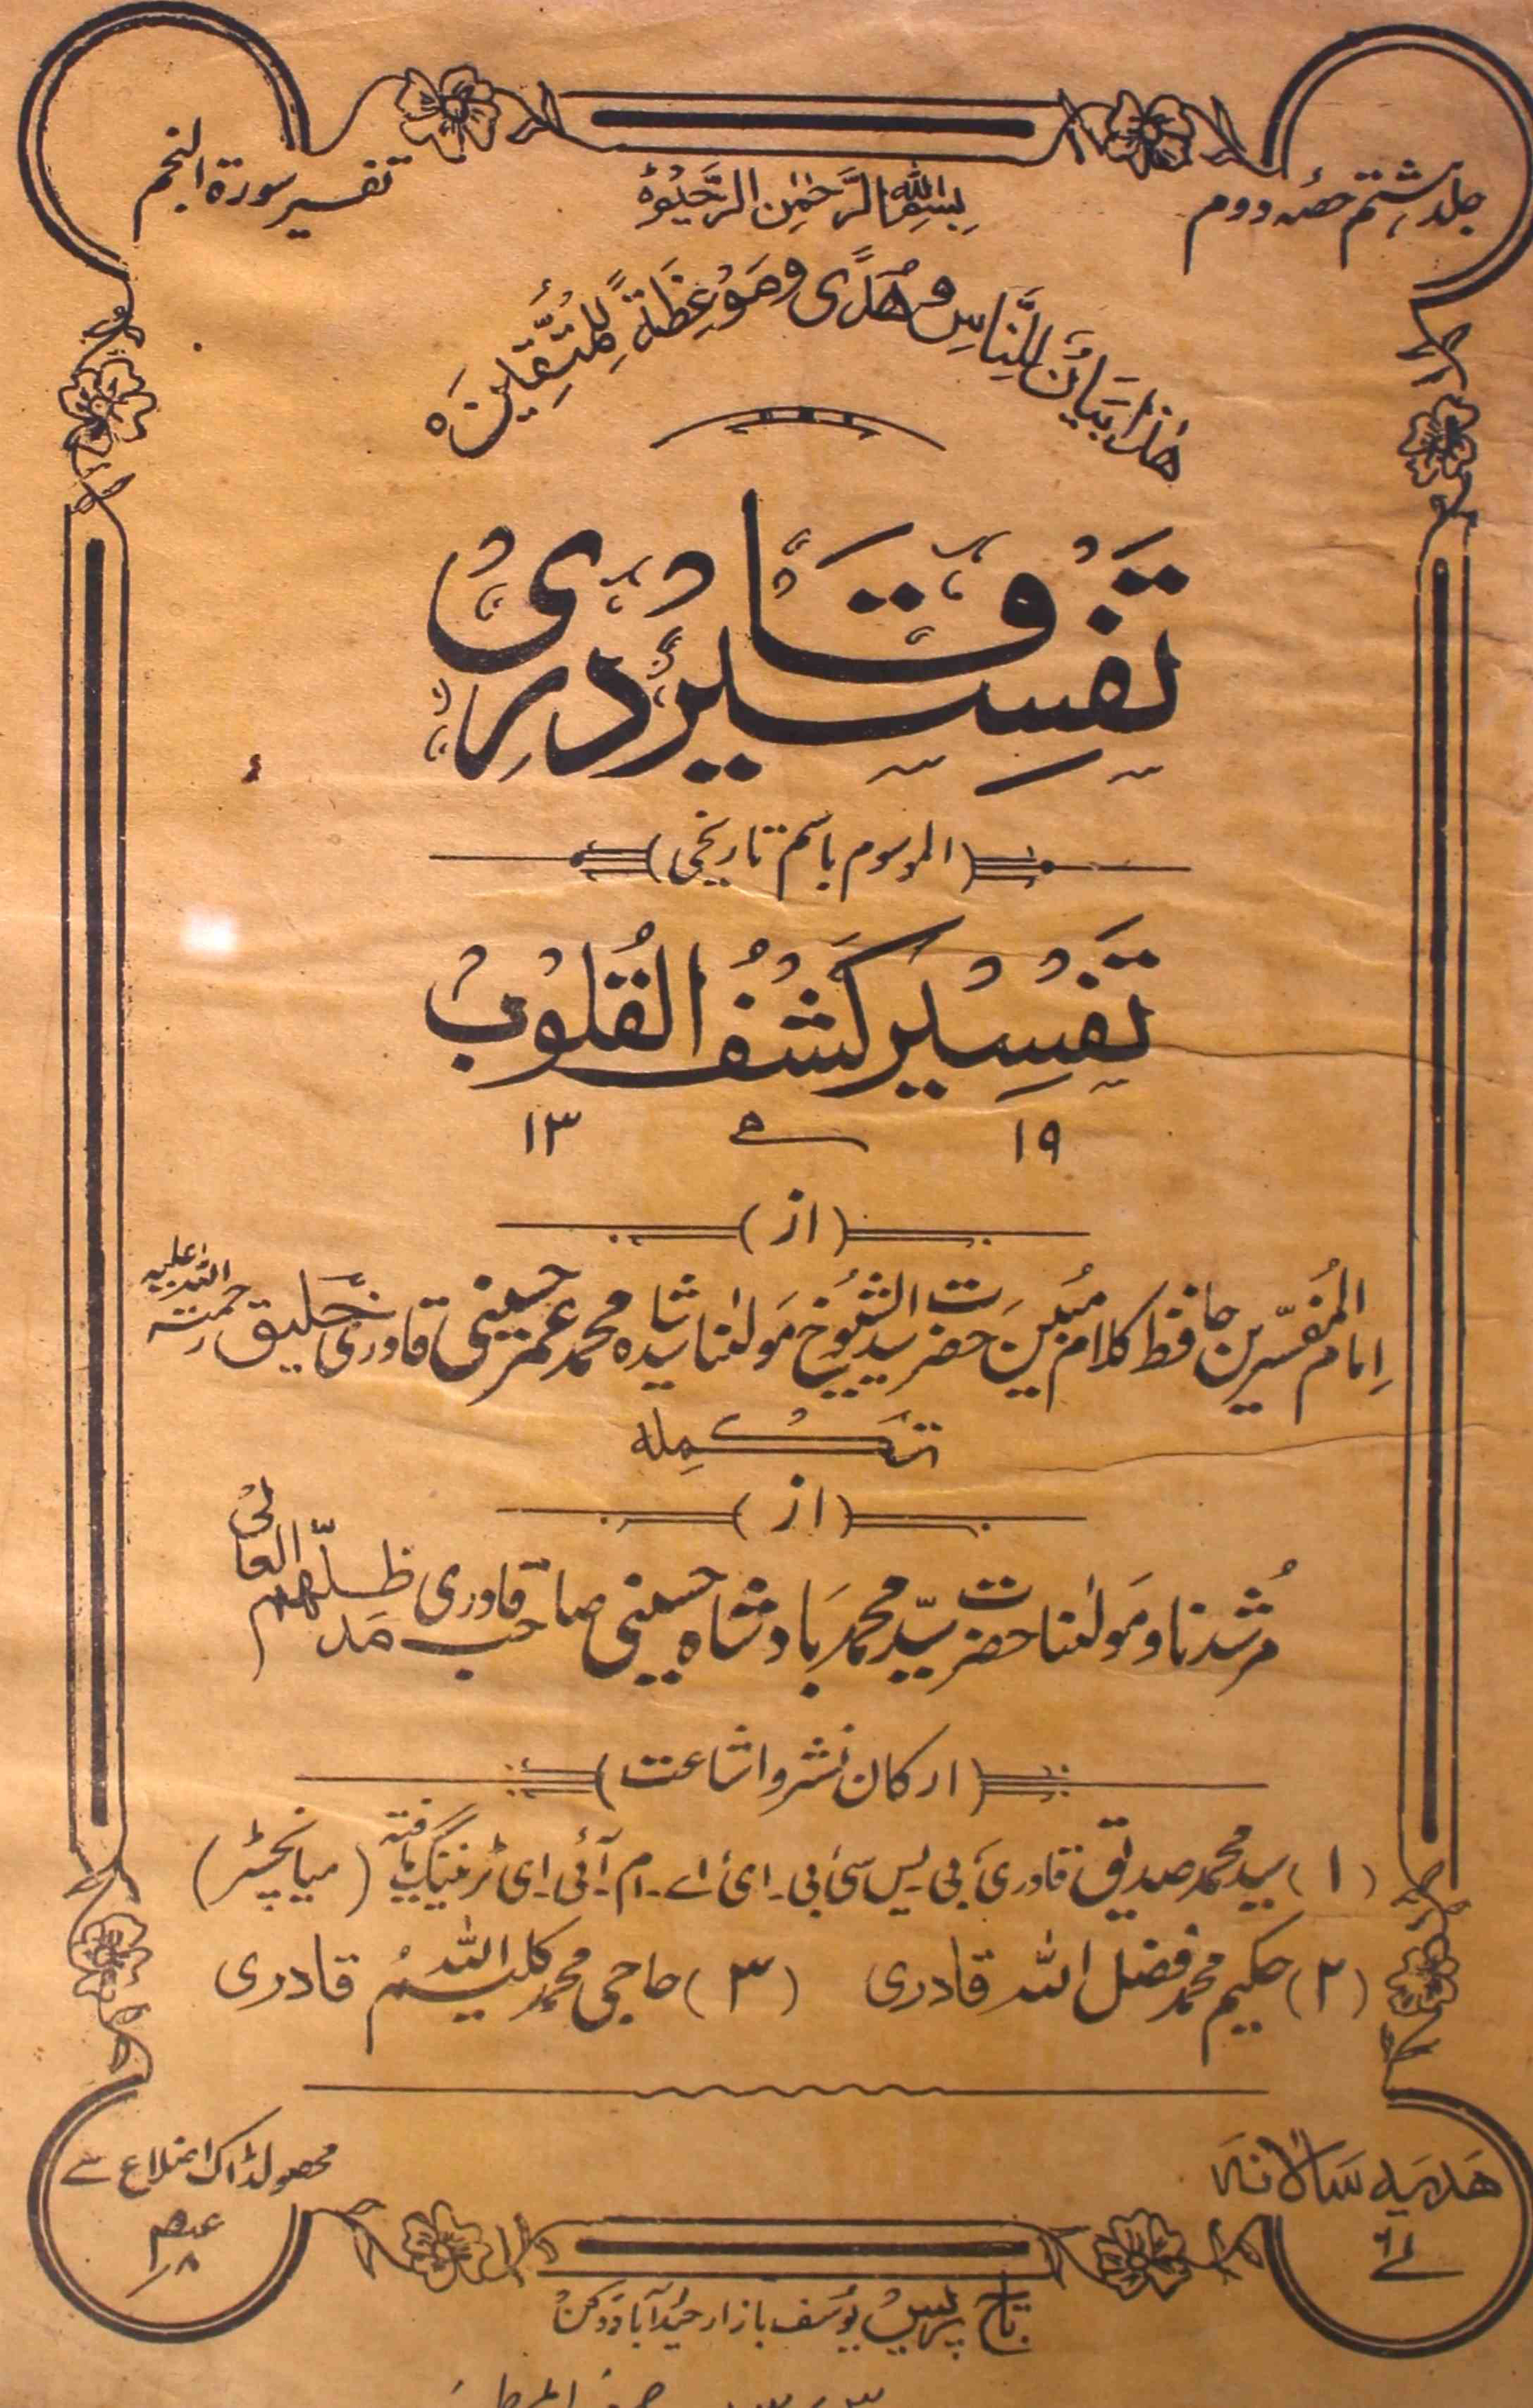 جلد ہشتم حصہ دوم
تفسیر سورۃ النجم
بِسْمِ اللّٰهِ الرَّحْمٰنِ الرَّحِيْمِ
هٰذَا بَيَانٌ لِّلنَّاسِ وَهُدًى وَّمَوْعِظَةٌ لِّلْمُتَّقِيْنَ ہ
تفسیر قادری
(الموسوم باسم تاریخی)
تفسیر کشف القلوب
۱۳ ھ ۱۹
(از)
امام المفسّرین حافظ کلام مبین حضرت سید الشیوخ مولٰنا شاہ محمد عمر حسینی قادری خلیق رحمتہ اللہ علیہ
تکملہ
(از)
مرشدنا و مولٰنا حضرت سیّد محمد بادشاہ حسینی صاحب قادری مدظلّہم العالی
(ارکان نشر و اشاعت)
(۱) سید محمد صدیق قادری بی۔یس سی بی۔ای اے۔ام۔آئی۔ای ٹرننگ یافتہ (میانچسٹر)
(۲) حکیم محمد فضل اللہ قادری (۳) حاجی محمد کلیم اللہ قادری
ھدیہ سالانہ
محصول ڈاک اضلاع سے
تاج پریس یوسف بازار حیدرآباد دکن